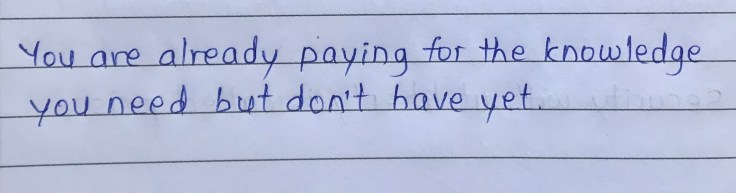 You are already paying for the knowledge
you need but don't have yet.